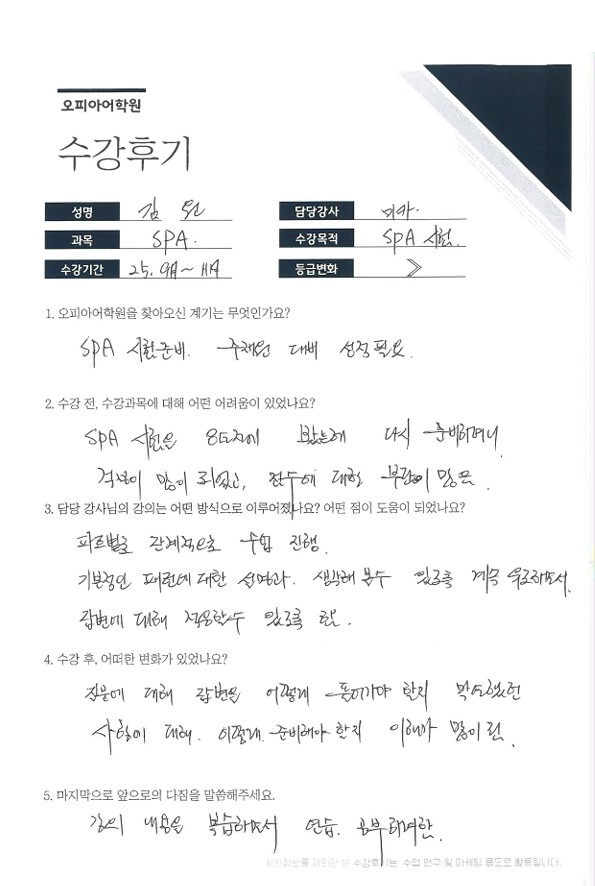 오피아어학원
수강후기
성명 김 담당강사 미카.
과목 SPA. 수강목적 SPA 시험.
수강기간 25. 9月 ~ 11月 등급변화
1. 오피아어학원을 찾아오신 계기는 무엇인가요?
SPA 시험준비. 주재원 대비 성적 필요.
2. 수강 전, 수강과목에 대해 어떤 어려움이 있었나요?
SPA 시험을 8년전에 봤는데 다시 준비하려니
걱정이 많이 되었고, 점수에 대한 부담이 많음.
3. 담당 강사님의 강의는 어떤 방식으로 이루어졌나요? 어떤 점이 도움이 되었나요?
파트별로 단계적으로 수업 진행.
기본적인 패턴에 대한 설명과. 생각해 볼수 있도록 계속 유도하면서.
답변에 대해 적응할수 있도록 함.
4. 수강 후, 어떠한 변화가 있었나요?
질문에 대해 답변을 어떻게 풀어가야 할지 막막했던
사항에 대해. 어떻게. 준비해야 할지 이해가 많이 됨.
5. 마지막으로 앞으로의 다짐을 말씀해주세요.
강의 내용을 복습하면서 연습. 공부하려함.
개인정보를 제외한 본 수강후기는 수업 연구 및 마케팅 용도로 활용됩니다.